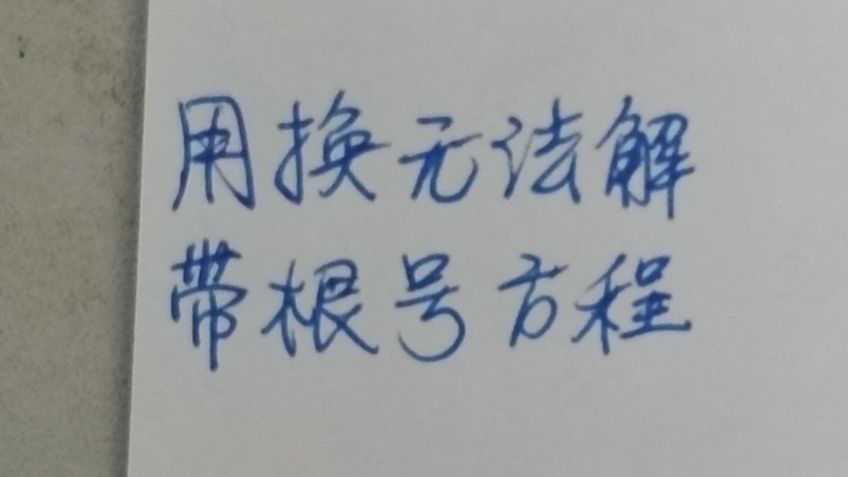 用换元法解
带根号方程